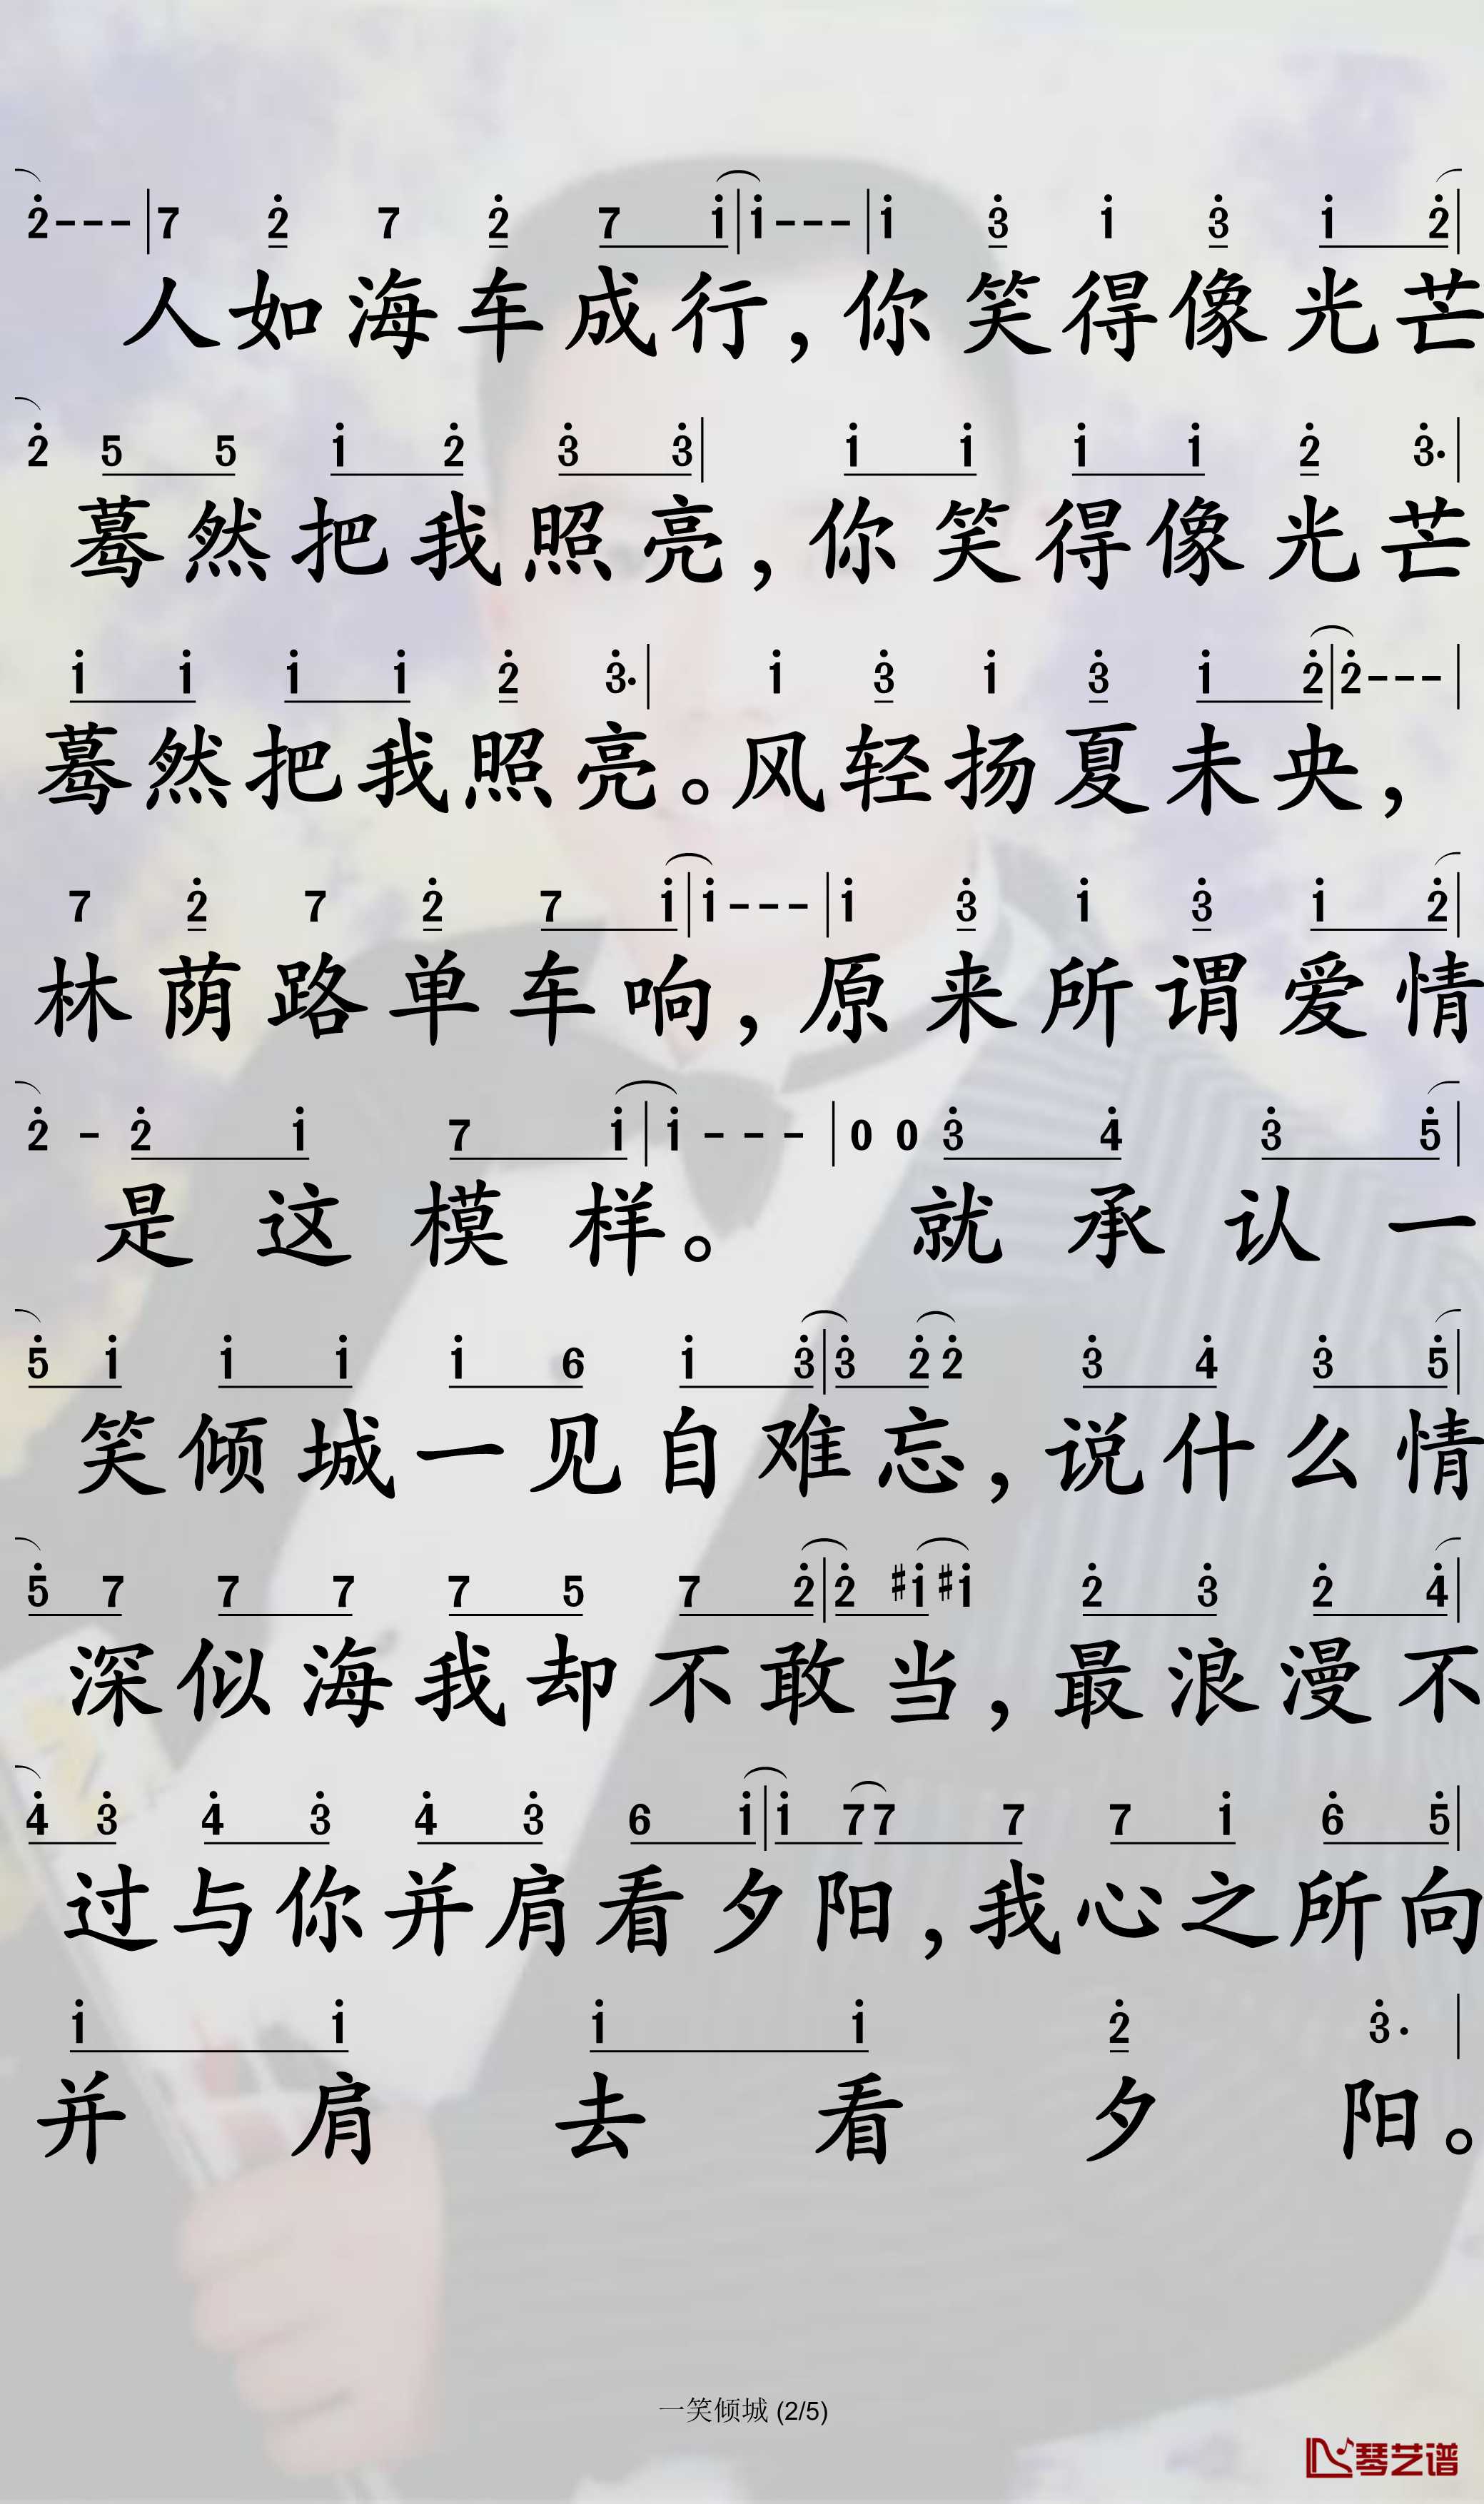 2̇--- | 7 2̇ 7 2̇ 7 1̇ | 1̇--- | 1̇ 3̇ 1̇ 3̇ 1̇ 2̇ |
人如海车成行，你笑得像光芒
2̇ 5 5 1̇ 2̇ 3̇ 3̇ | 1̇ 1̇ 1̇ 1̇ 2̇ 3̇· |
蓦然把我照亮，你笑得像光芒
1̇ 1̇ 1̇ 1̇ 2̇ 3̇· | 1̇ 3̇ 1̇ 3̇ 1̇ 2̇ | 2̇--- |
蓦然把我照亮。风轻扬夏未央，
7 2̇ 7 2̇ 7 1̇ | 1̇--- | 1̇ 3̇ 1̇ 3̇ 1̇ 2̇ |
林荫路单车响，原来所谓爱情
2̇ - 2̇ 1̇ 7 1̇ | 1̇ - - - | 0 0 3̇ 4̇ 3̇ 5̇ |
是这模样。就承认一
5̇ 1̇ 1̇ 1̇ 1̇ 6 1̇ 3̇ | 3̇ 2̇ 2̇ 3̇ 4̇ 3̇ 5̇ |
笑倾城一见自难忘，说什么情
5̇ 7 7 7 7 5 7 2̇ | 2̇ #1̇ #1̇ 2̇ 3̇ 2̇ 4̇ |
深似海我却不敢当，最浪漫不
4̇ 3̇ 4̇ 3̇ 4̇ 3̇ 6 1̇ | 1̇ 7 7 7 7 1̇ 6̇ 5̇ |
过与你并肩看夕阳，我心之所向
1̇ 1̇ 1̇ 1̇ 2̇ 3̇· |
并肩去看夕阳。
一笑倾城 (2/5)
琴艺谱